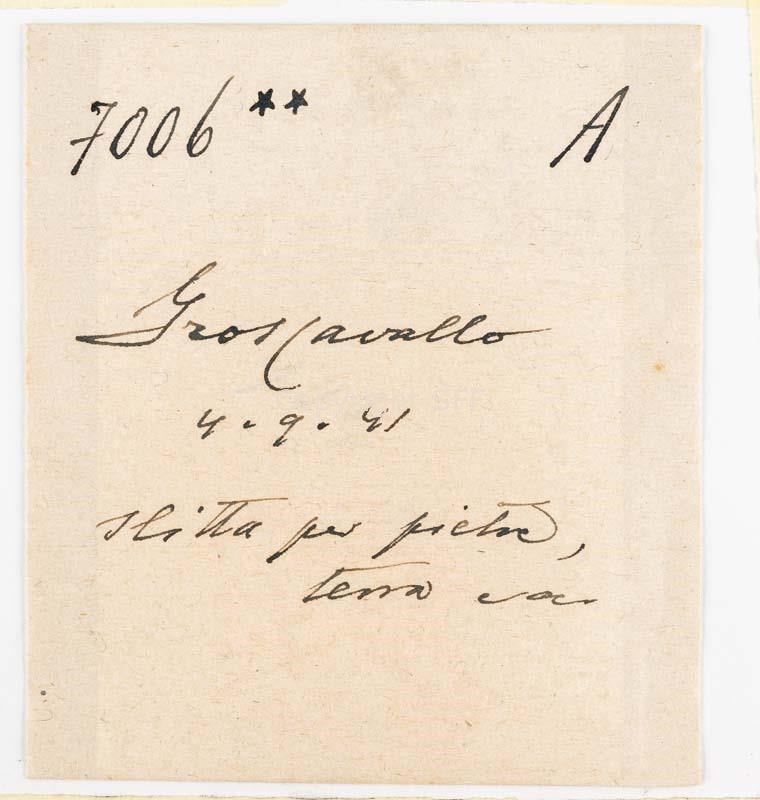 7006** A
Groscavallo
4.9.41
slitta per pietre,
terra